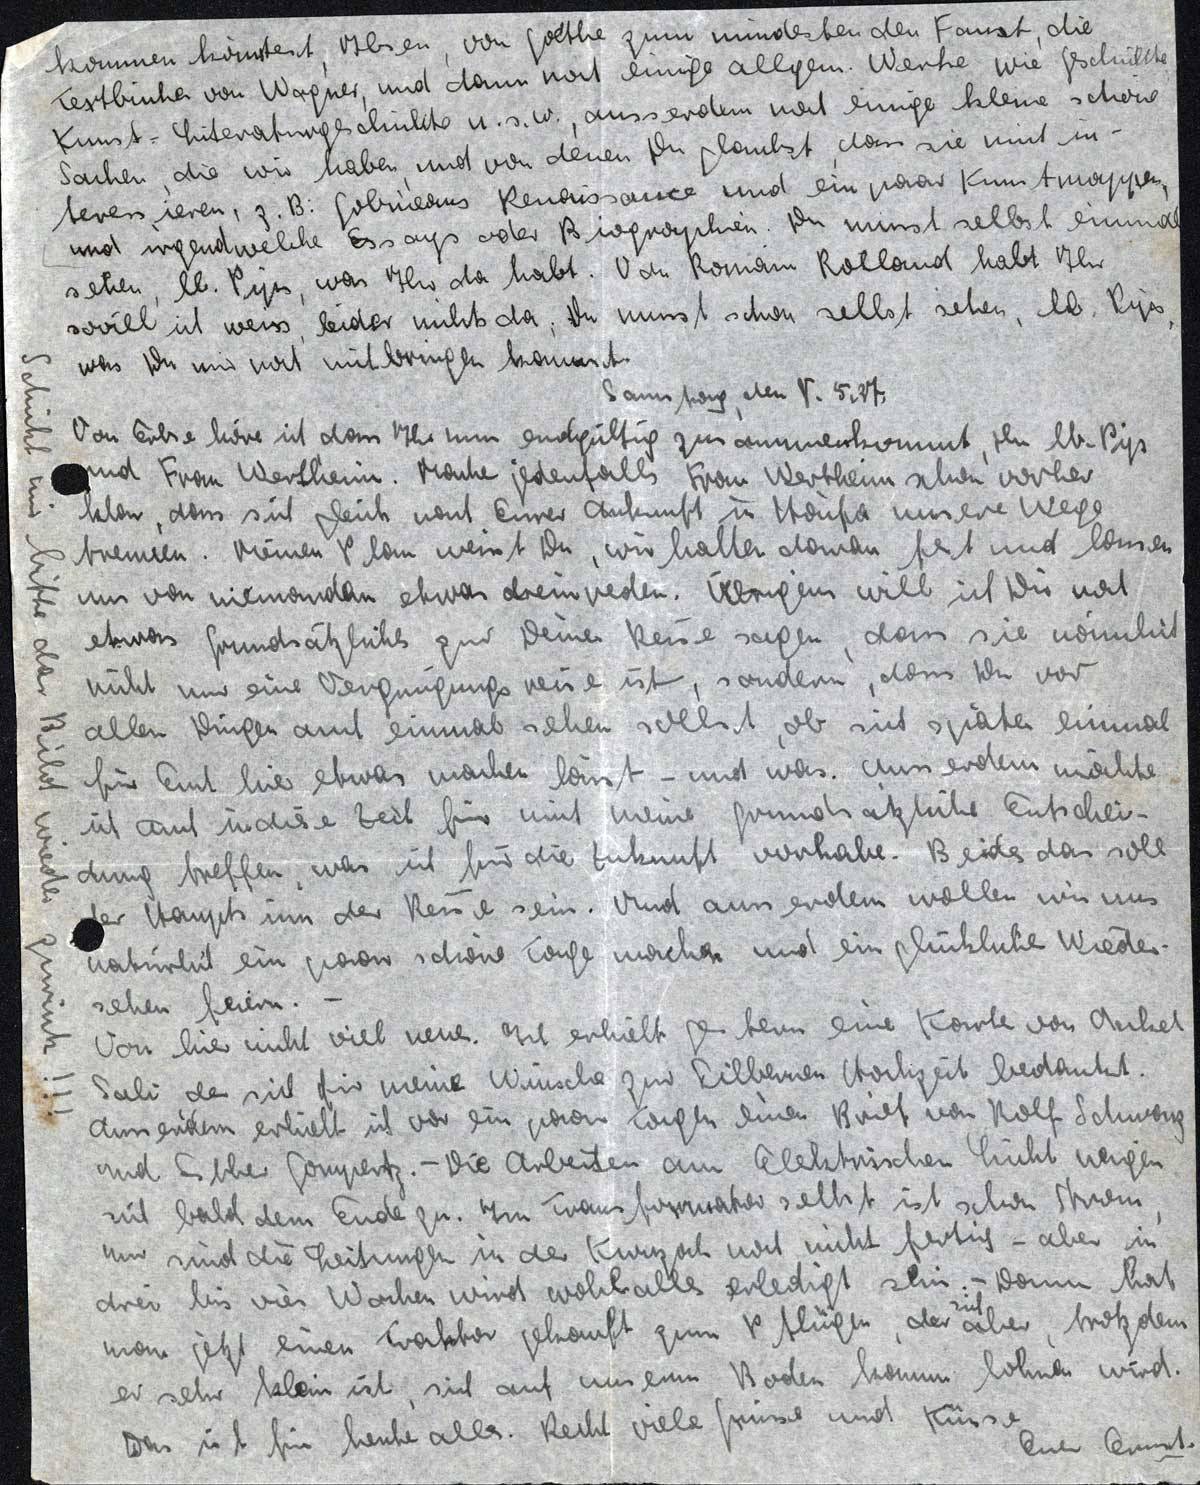 kommen könntest, Ibsen, von Goethe zum mindesten den Faust, die
Textbücher von Wagner, und dann noch einige allgem. Werke wie Geschichte
Kunst= Literaturgeschichte u.s.w., ausserdem noch einige kleine schöne
Sachen, die wir haben, und von denen Du glaubst, dass sie mich in-
teressieren, z.B: Gobineaus Renaissance und ein paar Kunstmappen,
und irgendwelche Essays oder Biographien. Du musst selbst einmal
sehen, lb. Pips, was Ihr da habt. Von Romain Rolland habt Ihr
soviel ich weiss, leider nichts da; Du musst schon selbst sehen, lb. Pips,
was Du mir noch mitbringen kannst.
Samstag, den 5.37.
Von Erbse höre ich dass Ihr nun endgültig zusammenkommt, Du lb. Pips
und Frau Wertheim. Mache jedenfalls Frau Wertheim schon vorher
klar, dass sich gleich nach Eurer Ankunft in Haifa unsere Wege
trennen. Meinen Plan weisst Du, wir halten daran fest und lassen
uns von niemandem etwas dreinreden. Übrigens will ich Dir noch
etwas grundsätzliches zur Deiner Reise sagen, dass sie nämlich
nicht nur eine Vergnügungsreise ist, sondern, dass Du vor
allen Dingen auch einmal sehen sollst, ob sich später einmal
für Euch hier etwas machen lässt – und was. Ausserdem möchte
ich auch in diese Zeit für mich meine grundsätzliche Entschei-
dung treffen, was ich für die Zukunft vorhabe. Beides das soll
der Hauptsinn der Reise sein. Und ausserdem wollen wir uns
natürlich ein paar schöne Tage machen und ein glückliche Wieder-
sehen feiern. –
Von hier nicht viel neues. Ich erhielt gestern eine Karte von Onkel
Sali der sich für meine Wünsche zur Silbernen Hochzeit bedankt.
Ausserdem erhielt ich vor ein paar Tagen einen Brief von Rolf Schwarz
und Esther Gompertz. – Die Arbeiten am Elektrischen Licht neigen
sich bald dem Ende zu. Im Transformator selbst ist schon Strom,
nur sind die Leitungen in der noch nicht fertig – aber in
drei bis vier Wochen wird wohl alles erledigt sein. – Dann hat
man jetzt einen Traktor gekauft zum Pflügen, der sich aber, trotzdem
er sehr klein ist, sich auf unserm Boden kaum lohnen wird.
Das ist für heute alles. Recht viele Grüsse und Küsse
Euer Ernst.
Schickt mir bitte das Bild wieder zurück!!!